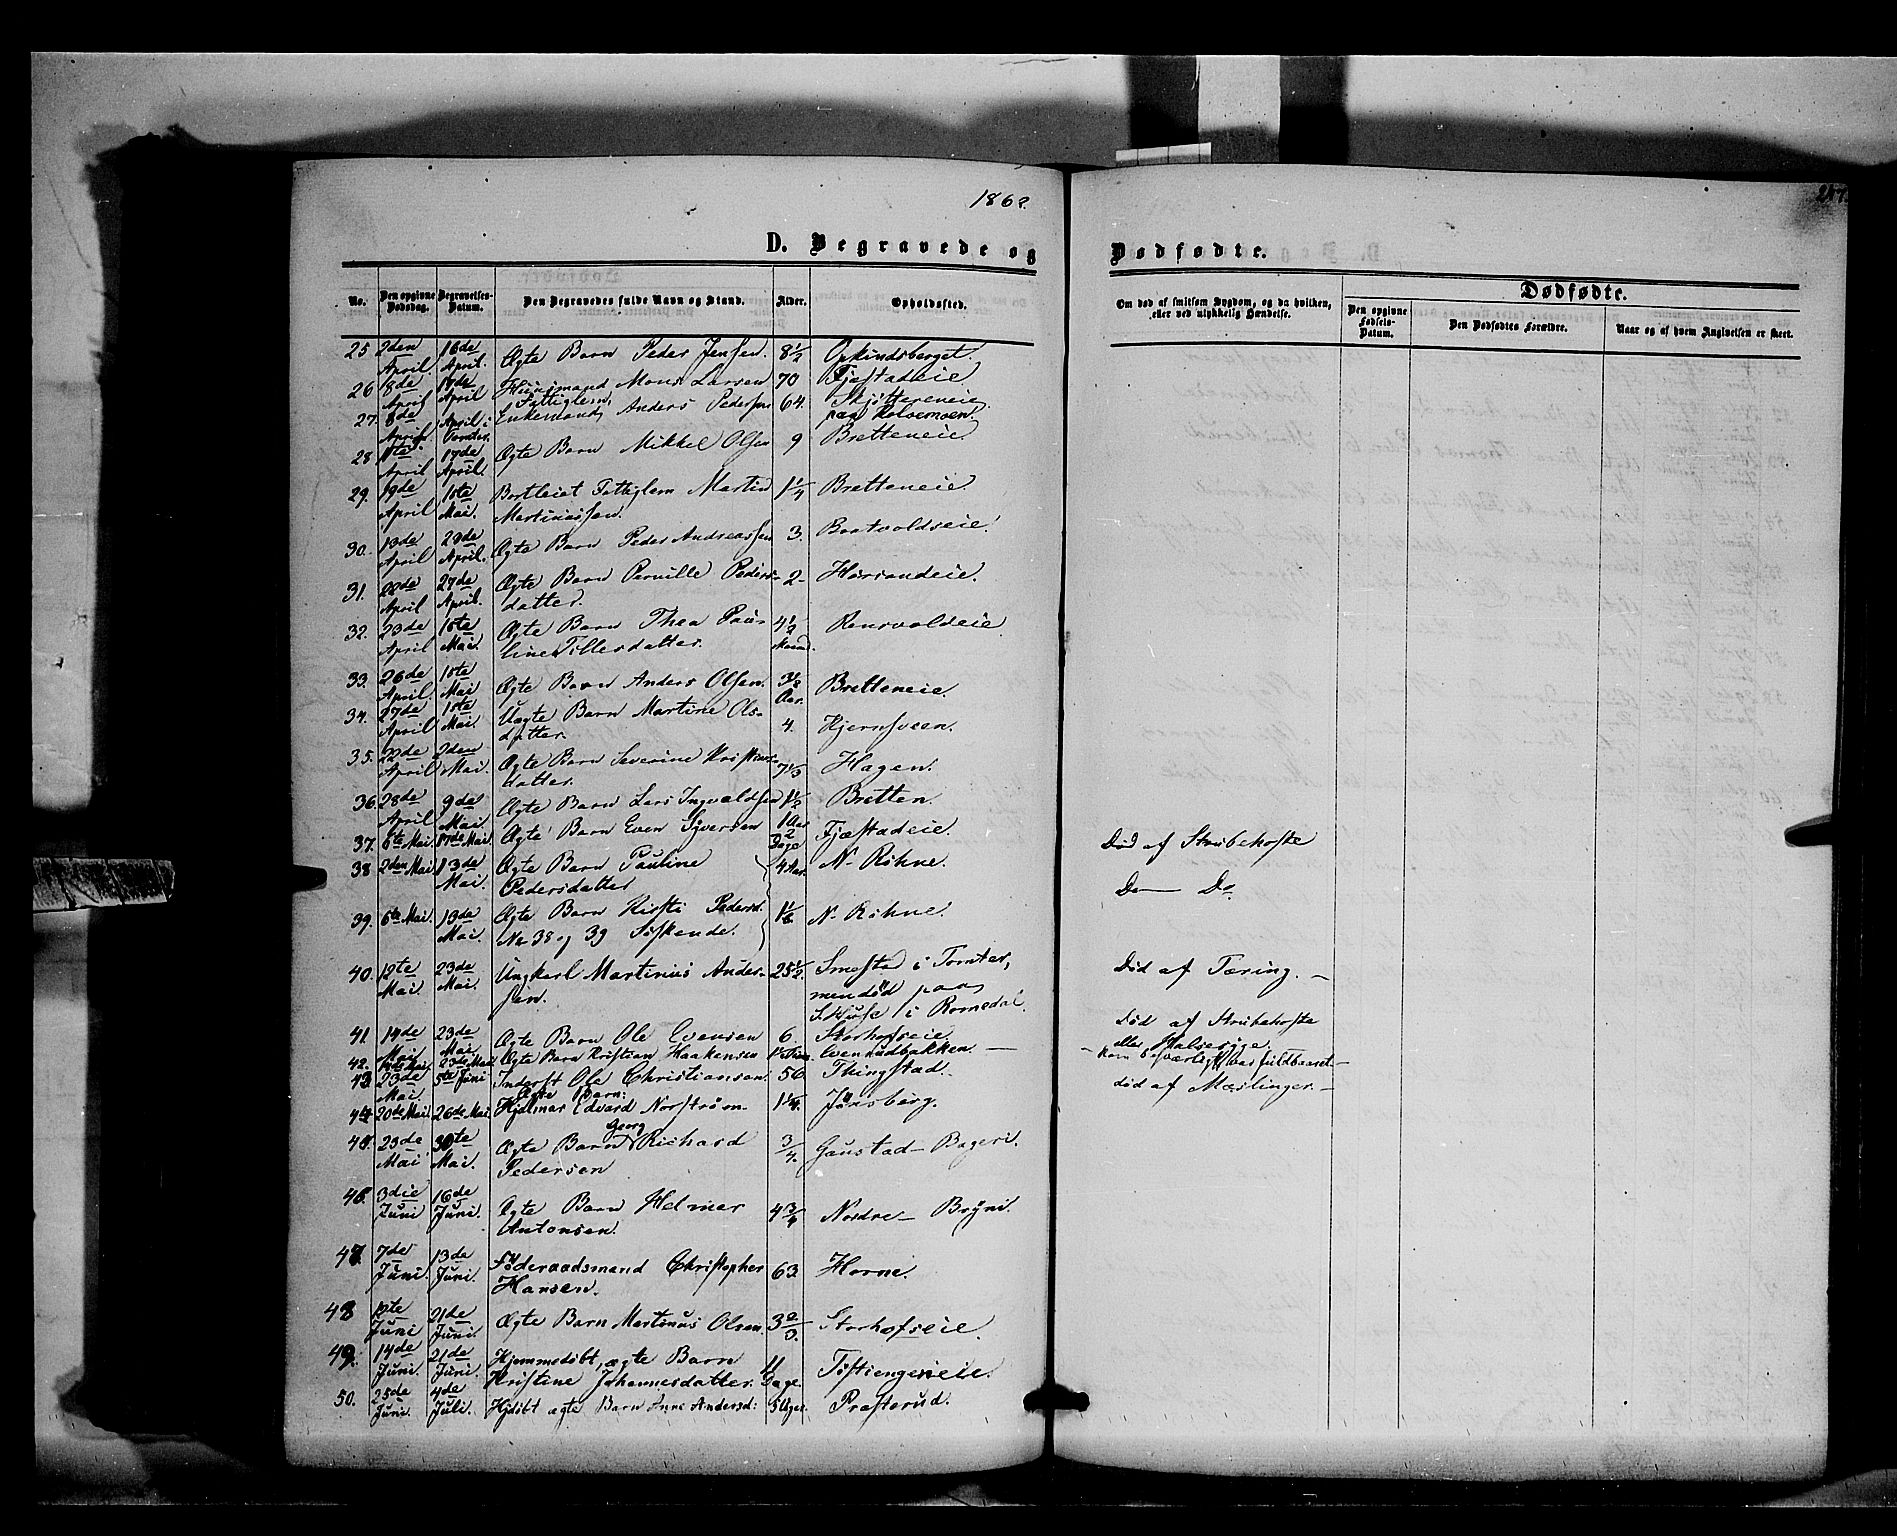 1862.
D. Begravede og
Dødfødte.
No.
Den opgivne Dødsdag.
Begravelses-Datum.
Den Begravedes fulde Navn og Stand.
Alder.
Opholdssted.
Om død af smitsom Sygdom, og da hvilken, eller ved ulykkelig Hændelse.
Dødfødte.
Den opgivne Fødsels-Datum.
Den Dødfødtes Forældre.
Naar og af hvem Angivelsen er skeet.
25 2den April 16de April. Ægte Barn Peder Jensen. 8½ Opkindsberget.
26 8de April 17de April Huusmand Mons Larsen 70 Fjæstadeie
27. 8de April April i Tomter. Fattiglem, Enkemand Anders Pedersen 64. Skjøttereneie paa
28. April 17de April. Ægte Barn Mikkel Olsen 9 Bretteneie
29. 19de April 1ste Mai. Bortleiet Fattiglem Martin Martiniussen. 1¼ Bretteneie.
30. 13de April April. Ægte Barn Peder Andreassen 3. Bootvoldseie.
31. 20de April 27de April. Ægte Barn Pernille Pedersdatter. 2 Horsandeie.
32. 23de April 1ste Mai. Ægte Barn Thea Pauline Tillersdatter. 4½ Maaned. Rensvoldeie
33. 26de April 1ste Mai Ægte Barn Anders Olsen. 3⅛ Aar. Bretteneie.
34. 27de April 1ste Mai. Uægte Barn Martine Olsdatter. 4. Hjernsveen.
35. 22de April 2den Mai. Ægte Barn Severine datter. 7⅓ Hagen.
36. 28de April 9de Mai Ægte Barn Lars Ingvaldsen 1½ Bretten.
37. 6te Mai. 17de Mai Ægte Barn Even Syversen 1 Aar 2 Dage Fjæstadeie. Død af Strubehoste
38 2den Mai 13de Mai. Ægte Barn Pauline Pedersdatter 4 Aar. N. Röhne. Do — Do
39. 6te Mai. 13de Mai. Ægte Barn Kirsti Pedersd. No 38 og 39 Söskende. 1⅙. N. Röhne.
40. 12te Mai. 23de Mai. Ungkarl Martinius Andersen. 25½. Smestad i Tomter, men død paa S. Huse i Romedal. Død af Tæring. —
41 14de Mai 23de Mai. Ægte Barn Ole Evensen 6. Storhofseie. Død af Strubehoste eller Halssyge.
42. Mai 23de Mai Ægte Barn Kristian Haakensen Evenrudbakken. —
43. 23de Mai 5te Juni Inderst Ole Christiansen. 56 Thingstad.
44 20de Mai 26de Mai. Ægte Barn: Hjelmar Edvard Norström. 1¼. Jönsberg. død af Mæslinger. —
45. 23de Mai 30te Mai. Ægte Barn Georg Richard Pedersen ¾. Gaustad — Bageri.
46. 3die Juni 16de Juni. Ægte Barn Helmer Antonsen. 4¾ Nordre — Bryni.
47. 7de Juni. 13de Juni. Föderaadsmand Christopher Hansen. 63. Horne.
48 12te Juni 21de Juni. Ægte Barn Martinus Olsen. 3⅔. Storhofseie.
49. 14de Juni. 21de Juni. Hjemmedöbt, ægte Barn Kristine Johannesdatter. 11 Dage. Töftiengeneie.
50. 25de Juni. 4de Juli. Hjdöbt ægte Barn Anne Andersd: 5 Uger. Præsterud.